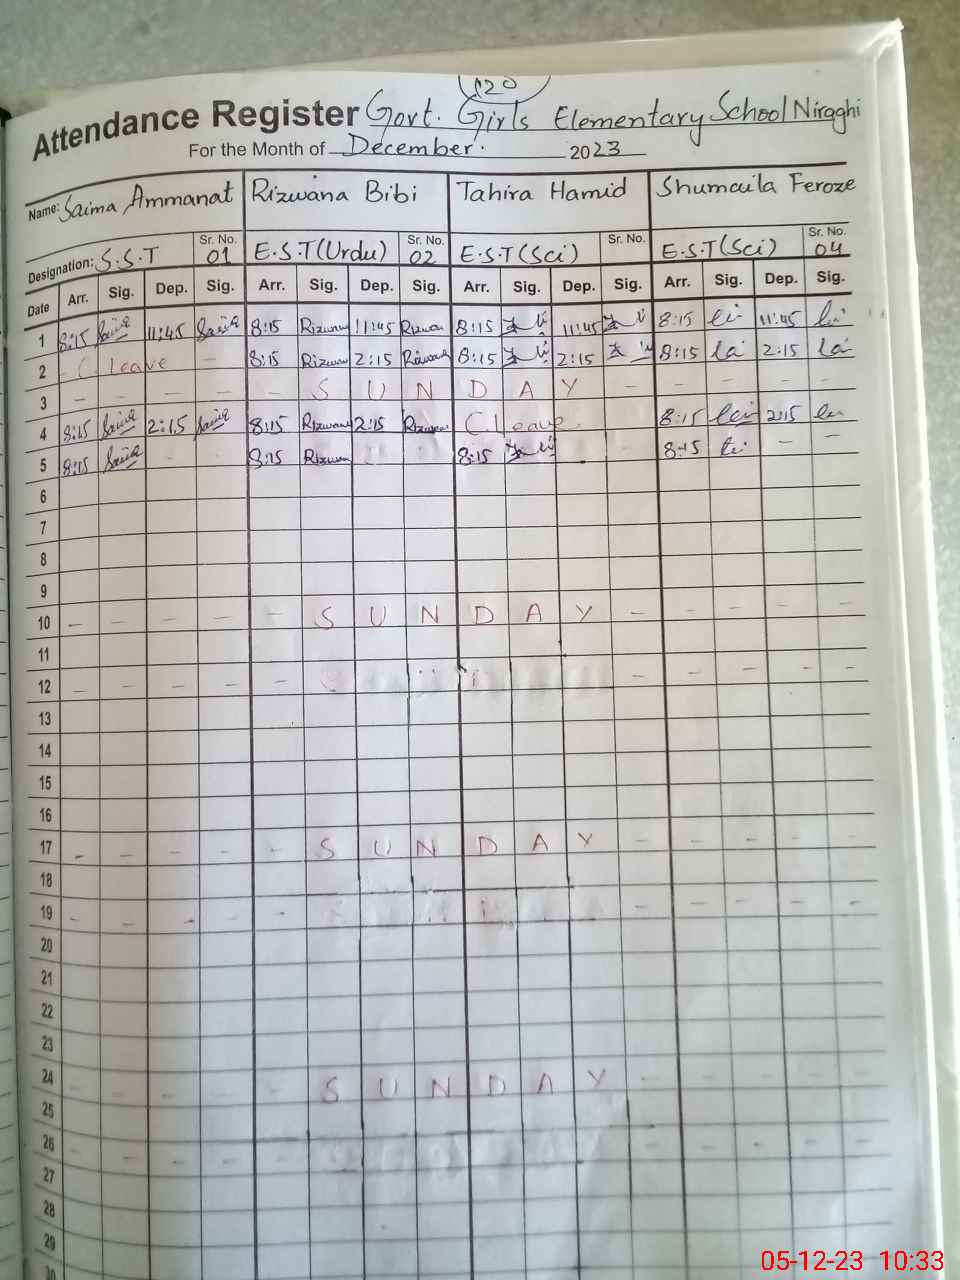 120
Attendance Register Govt. Girls Elementary School Niraghi
For the Month of December. 2023
Name: Saima Ammanat Rizwana Bibi Tahira Hamid Shumaila Feroze
Designation: S.S.T Sr. No. 01 E.S.T (Urdu) Sr. No. 02 E.S.T (Sci) Sr. No. E.S.T (Sci) Sr. No. 04
Date Arr. Sig. Dep. Sig. Arr. Sig. Dep. Sig. Arr. Sig. Dep. Sig. Arr. Sig. Dep. Sig.
1 8:15 Saima 11:45 Saima 8:15 Rizwana 11:45 Rizwana 8:15 11:45 8:15 11:45
2 - C. Leave - 8:15 Rizwana 2:15 Rizwana 8:15 2:15 8:15 2:15
3 - - - - - S U N D A Y - - - -
4 8:15 Saima 2:15 Saima 8:15 Rizwana 2:15 Rizwana C. Leave 8:15 2:15
5 8:15 Saima 8:15 Rizwana 8:15 8:15 - -
6
7
8
9
10 - - - - - S U N D A Y - - - - -
11
12 - - - - - - - - - -
13
14
15
16
17 - - - - - S U N D A Y - - - - -
18
19 - - - - - - - - - -
20
21
22
23
24 - - - - - S U N D A Y - - - - -
25
26 - - - - - - - - - -
27
28
29
30
05-12-23 10:33